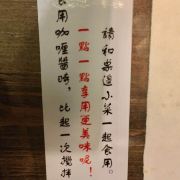 請和桌邊小菜一起食用。
一點一點享用更美味呢！
用咖喱醬時，比起一次攪拌